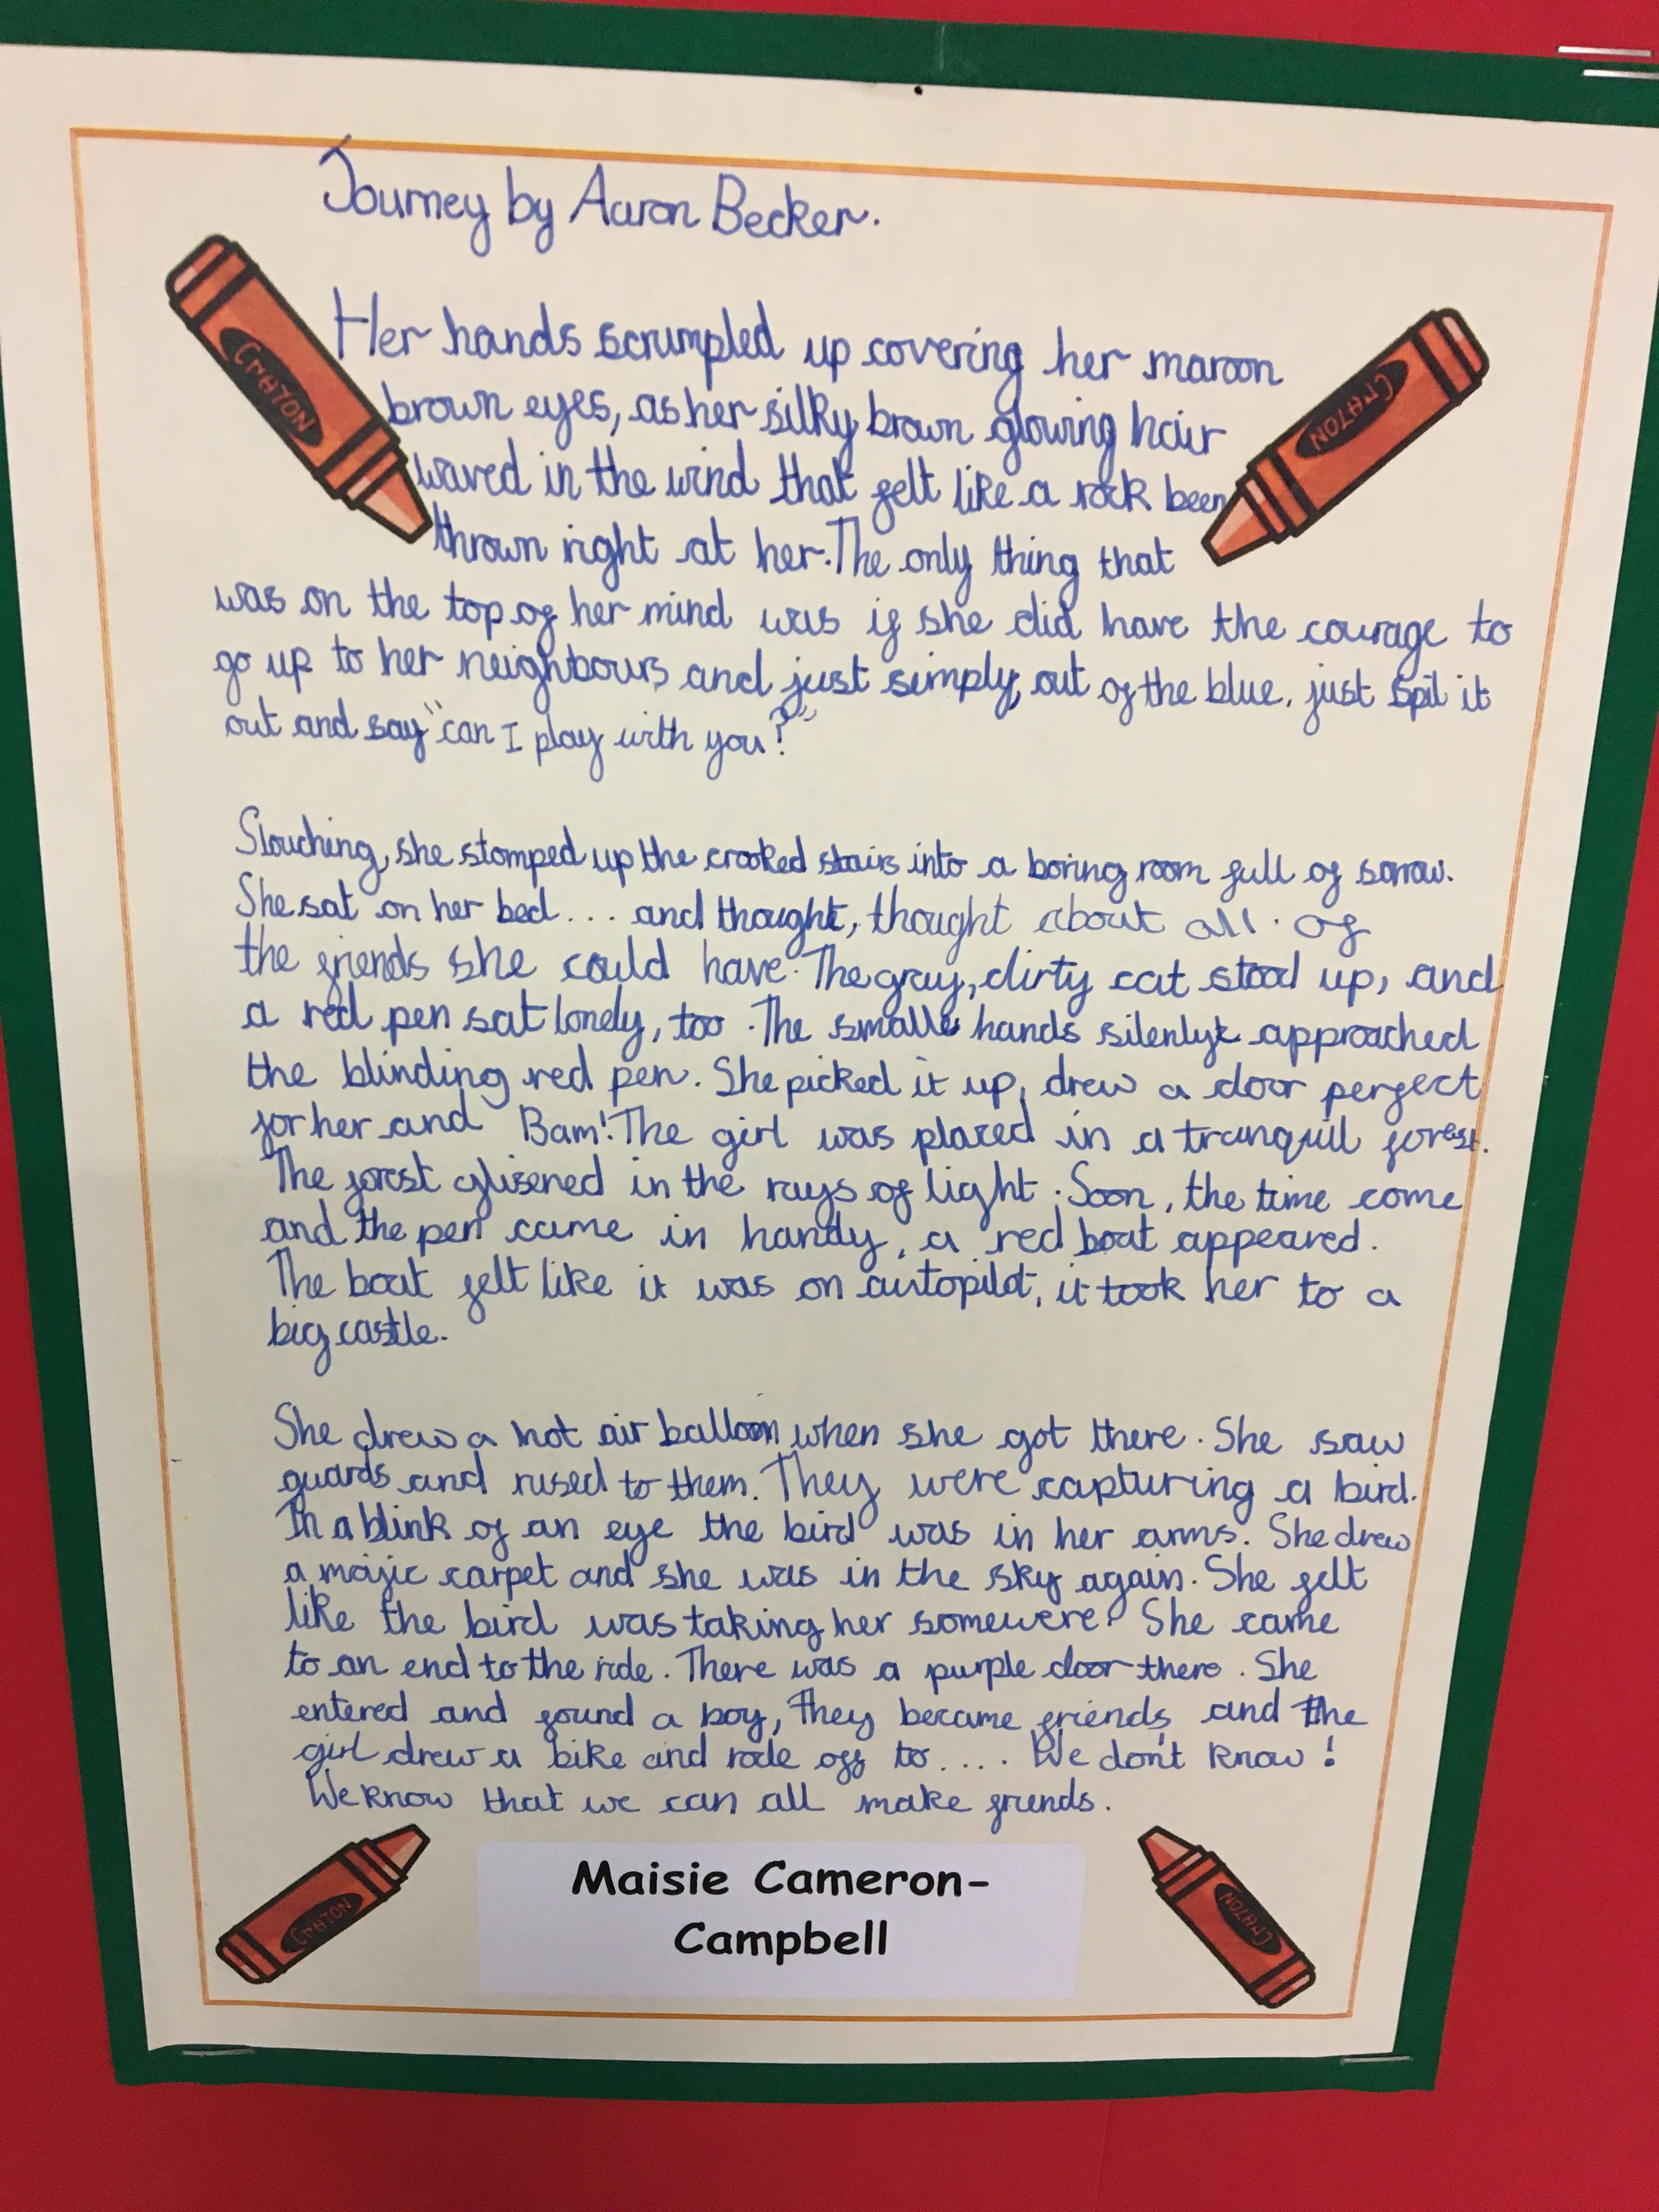 Journey by Aaron Becker.
CRAYON
CRAYON
Her hands scrumpled up covering her maroon
brown eyes, as her silky brown glowing hair
waved in the wind that felt like a rock been
thrown right at her. The only thing that
was on the top of her mind was if she did have the courage to
go up to her neighbours and just simply, out of the blue, just spil it
out and say "can I play with you?"
Slouching, she stomped up the crooked stairs into a boring room full of sorrow.
She sat on her bed... and thought, thought about all of
the friends she could have. The gray, dirty cat stood up, and
a red pen sat lonely, too. The small hands silenly approached
the blinding red pen. She picked it up, drew a door perfect
for her and Bam! The girl was placed in a tranquil forest.
The forest glisened in the rays of light. Soon, the time come
and the pen came in handy, a red boat appeared.
The boat felt like it was on autopilot, it took her to a
big castle.
She drew a hot air balloon when she got there. She saw
guards and rused to them. They were capturing a bird.
In a blink of an eye the bird was in her arms. She drew
a majic carpet and she was in the sky again. She felt
like the bird was taking her somewere? She came
to an end to the ride. There was a purple door there. She
entered and found a boy, They became friends, and the
girl drew a bike and rode off to.... We don't know!
We know that we can all make friends.
CRAYON
CRAYON
Maisie Cameron-
Campbell